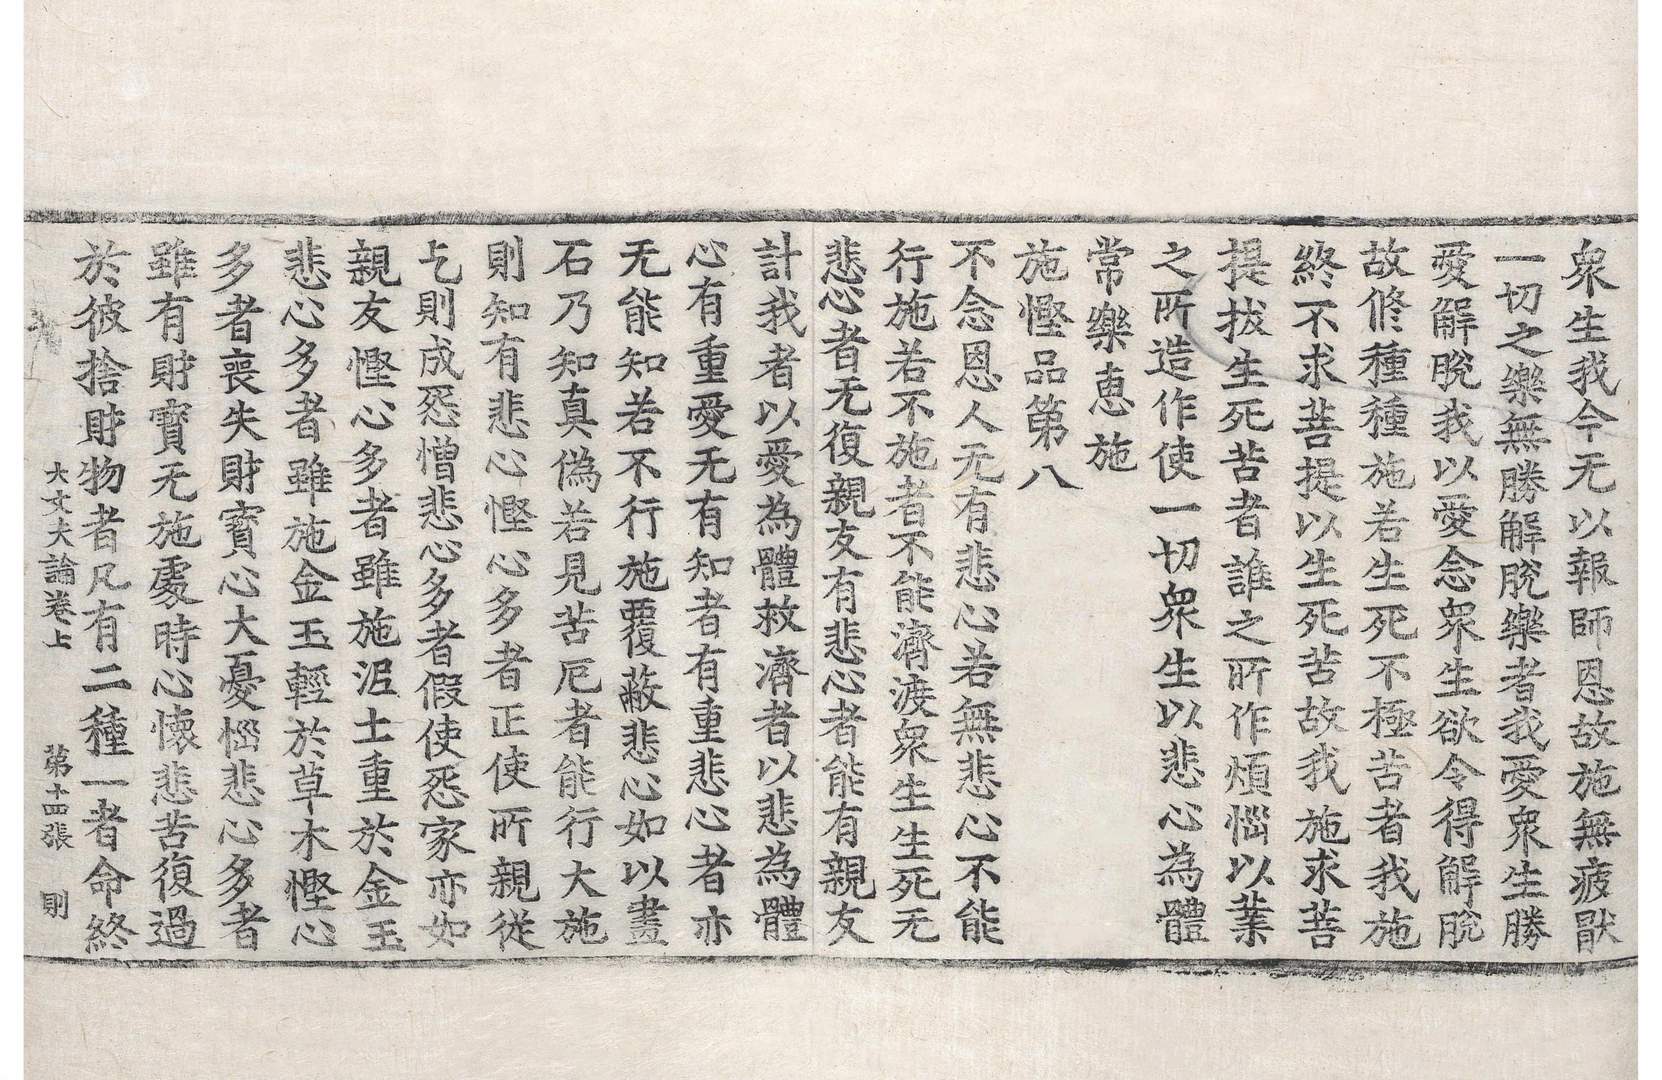 衆生我今无以報師恩故施無疲猒
一切之樂無勝解脫樂者我愛衆生勝
愛解脫我以愛念衆生欲令得解脫
故修種種施若生死不極苦者我施
終不求菩提以生死苦故我施求菩
提拔生死苦者誰之所作煩惱以業
之所造作使一切衆生以悲心為體
常樂恵施
施慳品第八
不念恩人无有悲心若無悲心不能
行施若不施者不能濟渡衆生生死无
悲心者无復親友有悲心者能有親友
計我者以愛為體救濟者以悲為體
心有重愛无有知者有重悲心者亦
无能知若不行施覆蔽悲心如以畫
石乃知真偽若見苦厄者能行大施
則知有悲心慳心多者正使所親從
乞則成怨憎悲心多者假使怨家亦如
親友慳心多者雖施泥土重於金玉
悲心多者雖施金玉輕於草木慳心
多者喪失財寳心大憂惱悲心多者
雖有財寳无施處時心懐悲苦復過
於彼捨財物者凡有二種一者命終
大丈夫論卷上 第十四張 則